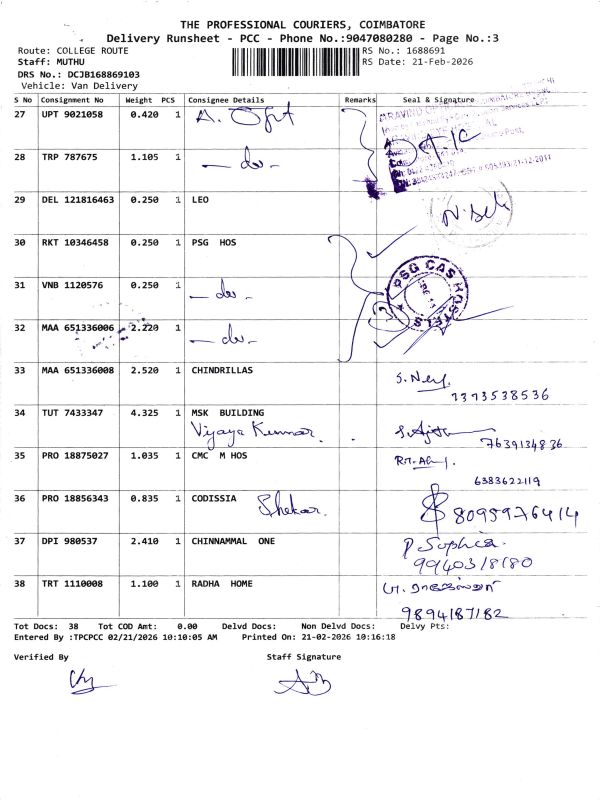 THE PROFESSIONAL COURIERS, COIMBATORE
Delivery Runsheet - PCC - Phone No.:9047080280 - Page No.:3
Route: COLLEGE ROUTE RS No.: 1688691
Staff: MUTHU RS Date: 21-Feb-2026
DRS No.: DCJB168869103
Vehicle: Van Delivery
S No Consignment No Weight PCS Consignee Details Remarks Seal & Signature
27 UPT 9021058 0.420 1 A. Opt
28 TRP 787675 1.105 1 — do —
29 DEL 121816463 0.250 1 LEO
30 RKT 10346458 0.250 1 PSG HOS
31 VNB 1120576 0.250 1 — do —
PSG CAS HOSTELS
32 MAA 651336006 2.220 1 — do —
33 MAA 651336008 2.520 1 CHINDRILLAS
7373538536
34 TUT 7433347 4.325 1 MSK BUILDING
Vijaya Kumar. S.Ajith 7639134836
35 PRO 18875027 1.035 1 CMC M HOS
6383622119
36 PRO 18856343 0.835 1 CODISSIA Shekar. 8095976414
37 DPI 980537 2.410 1 CHINNAMMAL ONE P Sophia.
9940318180
38 TRT 1110008 1.100 1 RADHA HOME
9894187182
Tot Docs: 38 Tot COD Amt: 0.00 Delvd Docs: Non Delvd Docs: Delvy Pts:
Entered By :TPCPCC 02/21/2026 10:10:05 AM Printed On: 21-02-2026 10:16:18
Verified By Staff Signature